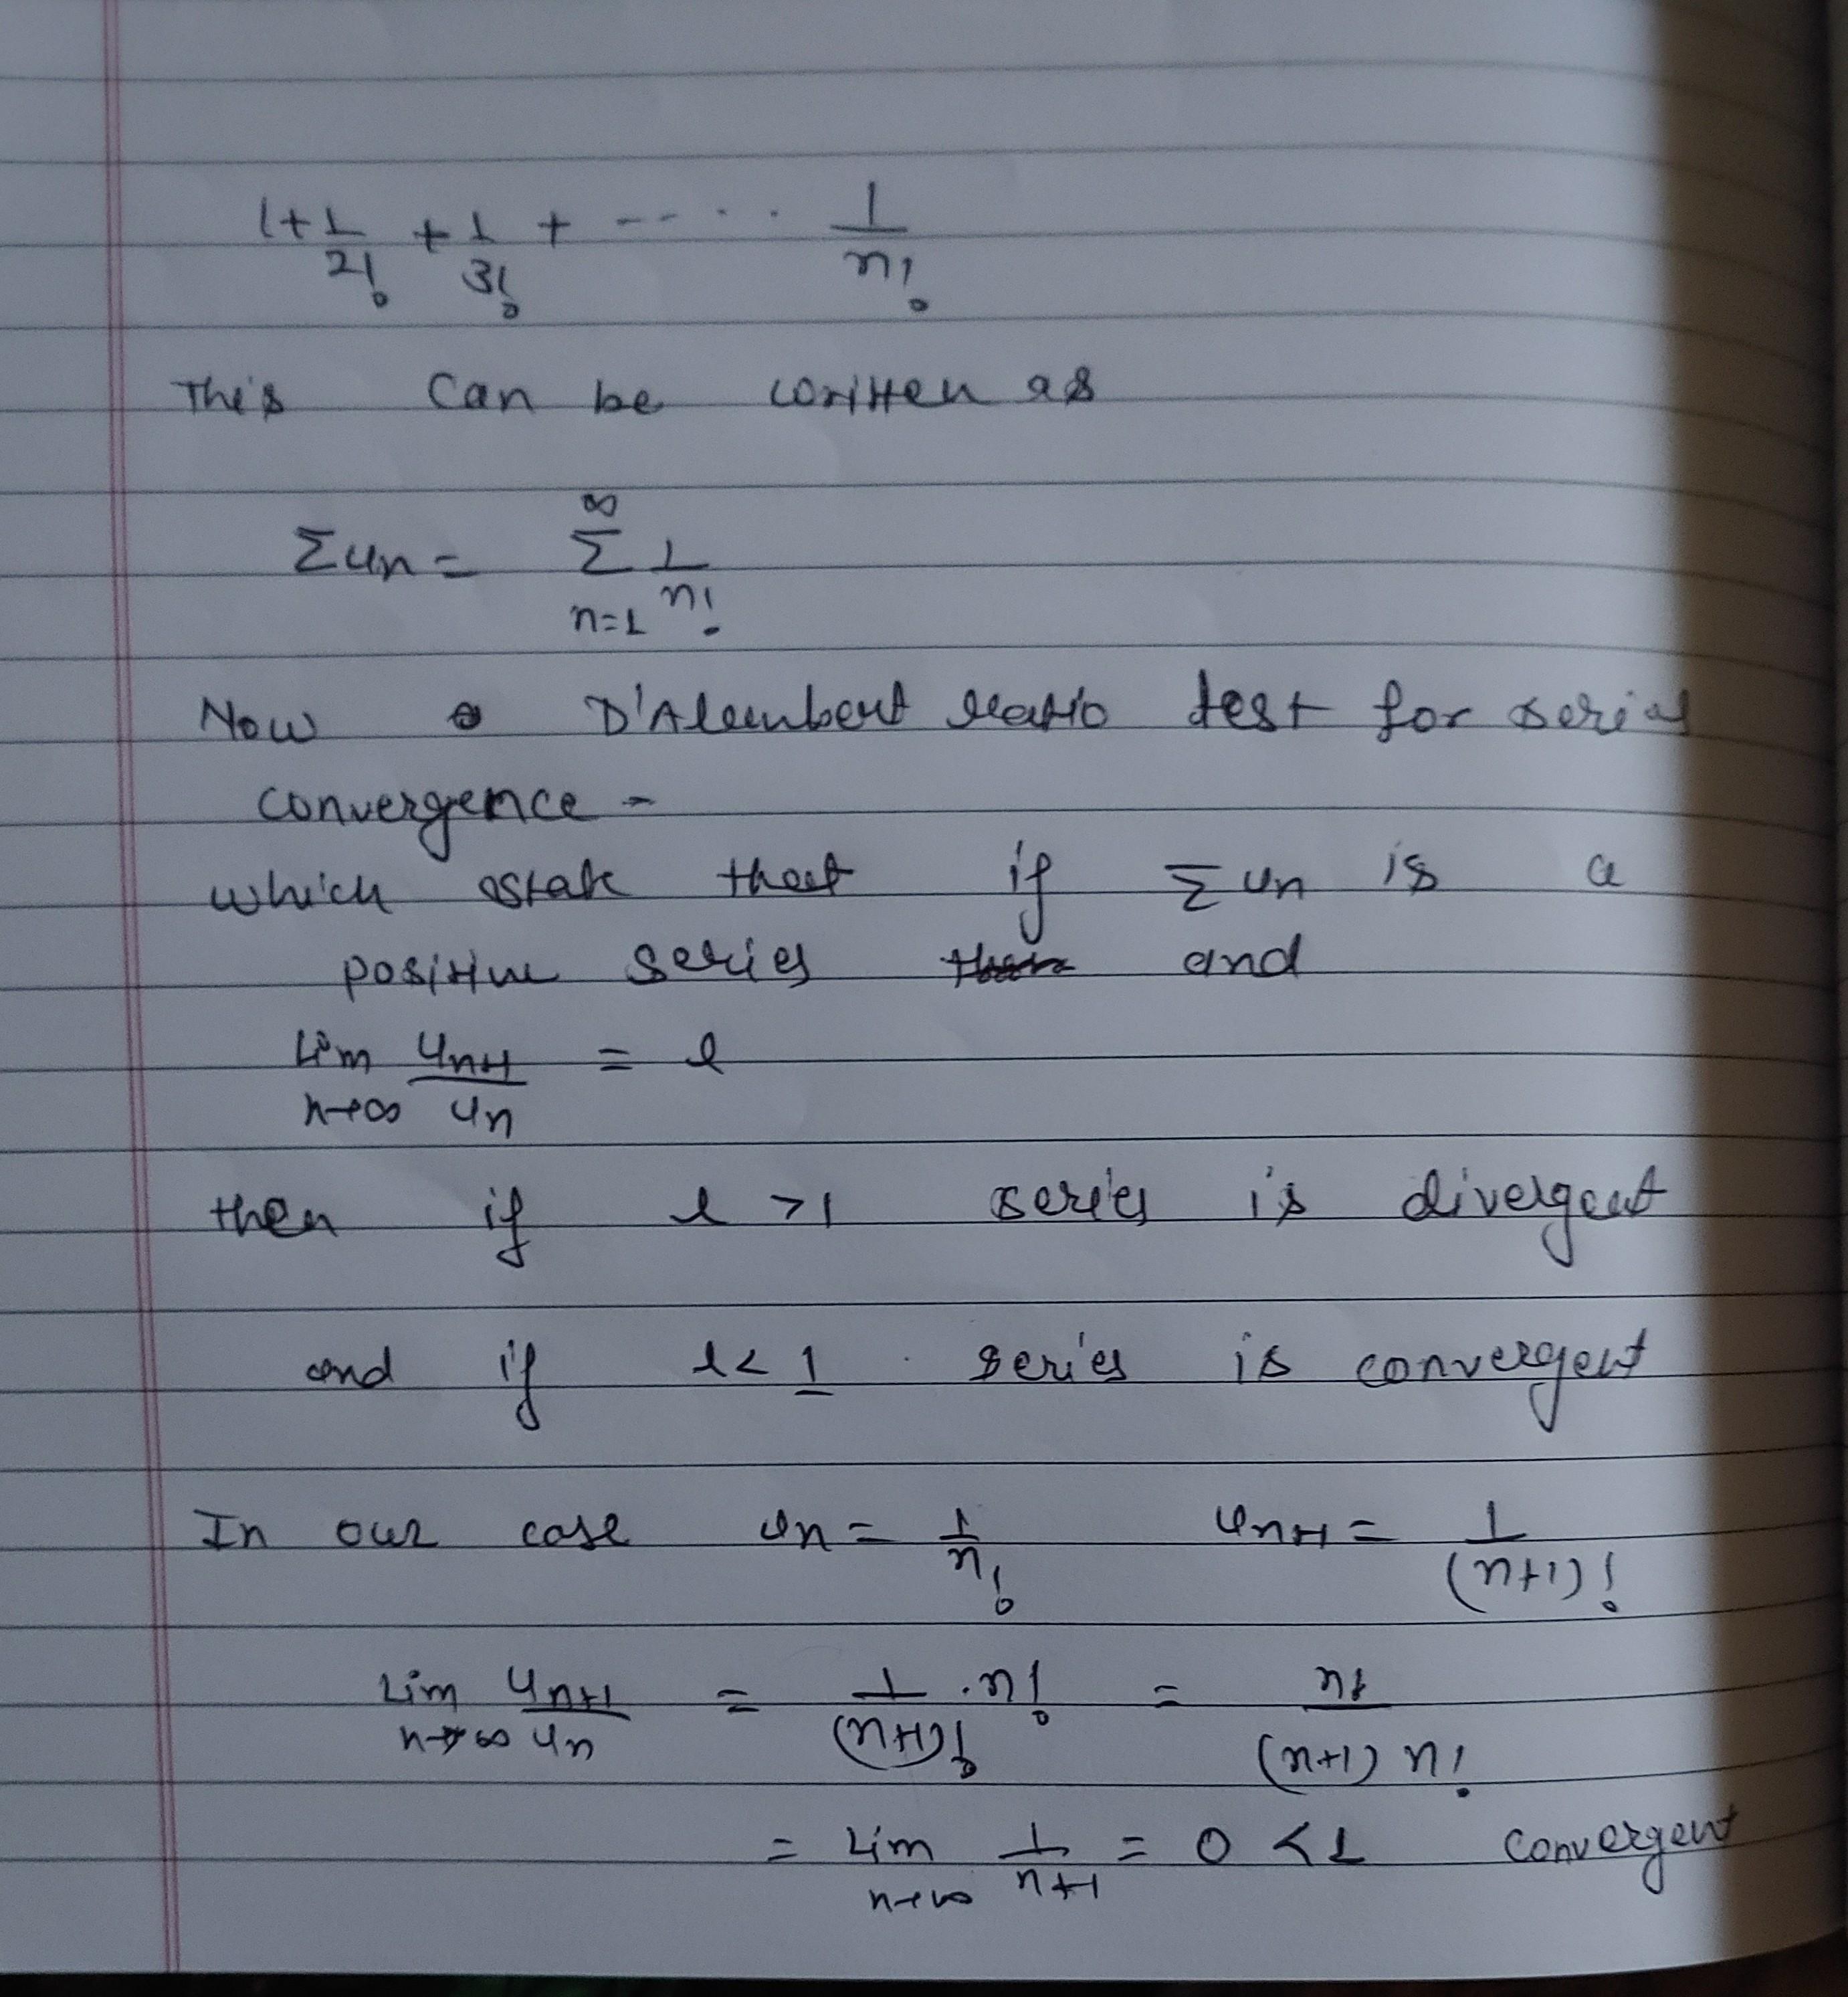 1 + 1/2! + 1/3! + ---.. 1/n!
This can be written as
Σun = ∞Σn=1 1/n!
Now D'Alembert ratio test for series
convergence -
which state that if Σun is a
positive series and
Lim n→∞ un+1/un = l
then if l >1 series is divergent
and if l< 1 . series is convergent
In our case un = 1/n! un+1 = 1/(n+1)!
Lim n→∞ un+1/un = 1/(n+1)! . n! = n!/(n+1) n!
= Lim n→∞ 1/n+1 = 0 <1 convergent